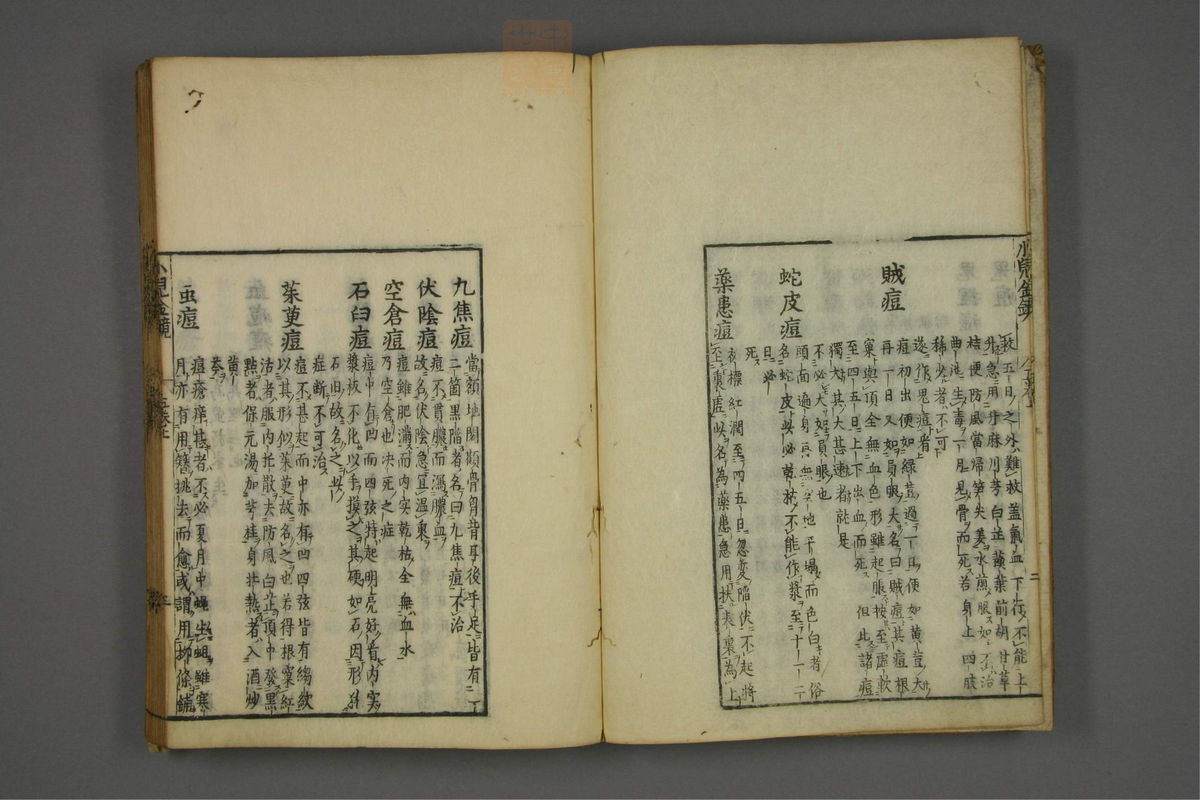 小兒金鏡
二
救五日之外難救蓋氣血下行不能上
升急用升麻川芎白芷黃葉前胡甘草
桂便防風當歸笋尖姜水煎服如不治
曲池生毒一月見骨而死若身上四肢
稀少必者不可下
逆作鬼痘看
賊痘
痘初出便如綠荳過一日便如黃荳大
再一日又如鳥眼大名曰賊痘其痘根
窠與頂全無血色形雖起脹按至虛軟
至四五日上下出血而死但此諸痘
獨大其大甚速者就是
不必大如鳥眼也
蛇皮痘
頭面遍身無空地平塌而色白者俗
名蛇皮此必乾枯不能作漿至十一二
日必
死
藥患痘
衣標紅潤至四五日忽変陷伏不起將
至裏虛此名為藥患急用扶表裏為上
九焦痘
當額地閣顴骨胷背耳後手足皆有一
二箇黑陷者名曰九焦痘不治
伏陰痘
痘不貫膿而瀉膿血
故名伏陰急宜溫裏
空倉痘
痘雖肥滿而内实乾枯全無血水
乃空倉也决死之症
石臼痘
痘中有凹而四弦特起明亮好看内実
漿板不化以手摸之其硬如石因形狀
石臼故名之此
症断不可治
茱萸痘
痘不甚起而中亦有凹四弦皆有縐紋
以其形似茱萸故名之也若得根窠紅
活者服内托散去防風白芷頂中發黑
點者保元湯加芎桂身非熱者入酒炒
黃
芩
虫痘
痘瘡痒甚者不必夏月中蠅生蛆雖寒
月亦有用簪挑去而愈或謂用柳條鋪
小兒金鏡